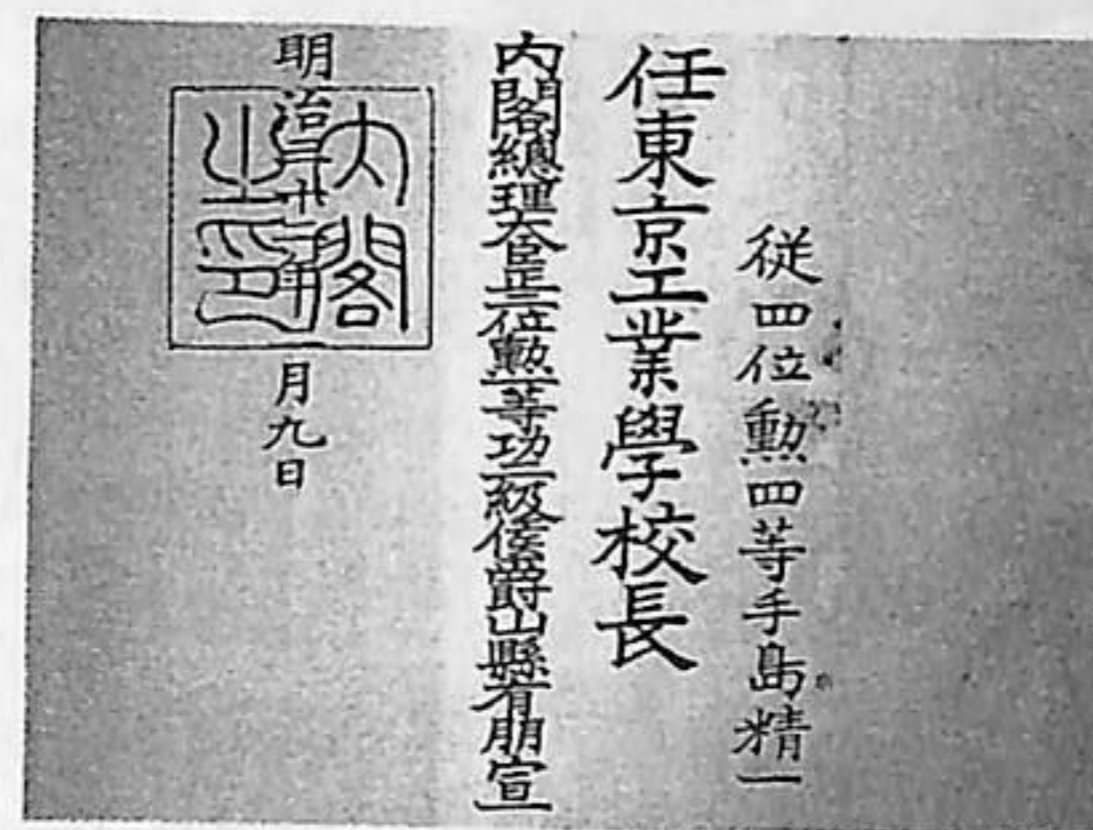 従四位勲四等手島精一
任東京工業學校長
内閣總理大臣正二位勲一等功二級侯爵山縣有朋宣
明治三十二年一月九日
内閣之印